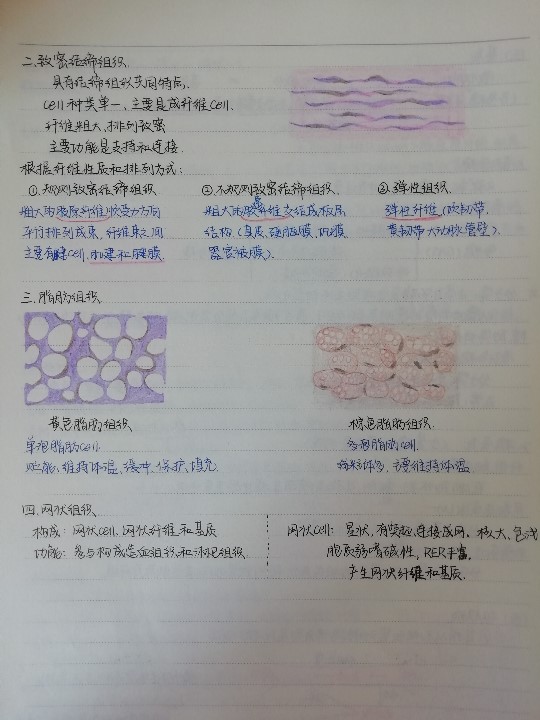 二.致密结缔组织
具有结缔组织共同特点.
cell种类单一,主要是成纤维cell.
纤维粗大,排列致密
主要功能是支持和连接.
根据纤维性质和排列方式:
①.规则致密结缔组织
粗大的胶原纤维顺受力方向
平行排列成束,纤维束之间
主要有腱cell,如肌腱和腱膜.
②.不规则致密结缔组织.
粗大的胶原纤维交织成板层
结构.(真皮、硬脑膜、巩膜、
器官被膜).
③.弹性组织.
弹性纤维(项韧带、
黄韧带、大动脉管壁).
三.脂肪组织.
黄色脂肪组织
单泡脂肪cell.
贮能,维持体温,缓冲,保护,填充.
棕色脂肪组织.
多泡脂肪cell.
线粒体多,主要维持体温.
四.网状组织
构成: 网状cell、网状纤维和基质
功能: 参与构成造血组织和淋巴组织.
网状cell: 星状,有突起,连接成网. 核大、色浅
胞质弱嗜碱性, RER丰富.
产生网状纤维和基质.